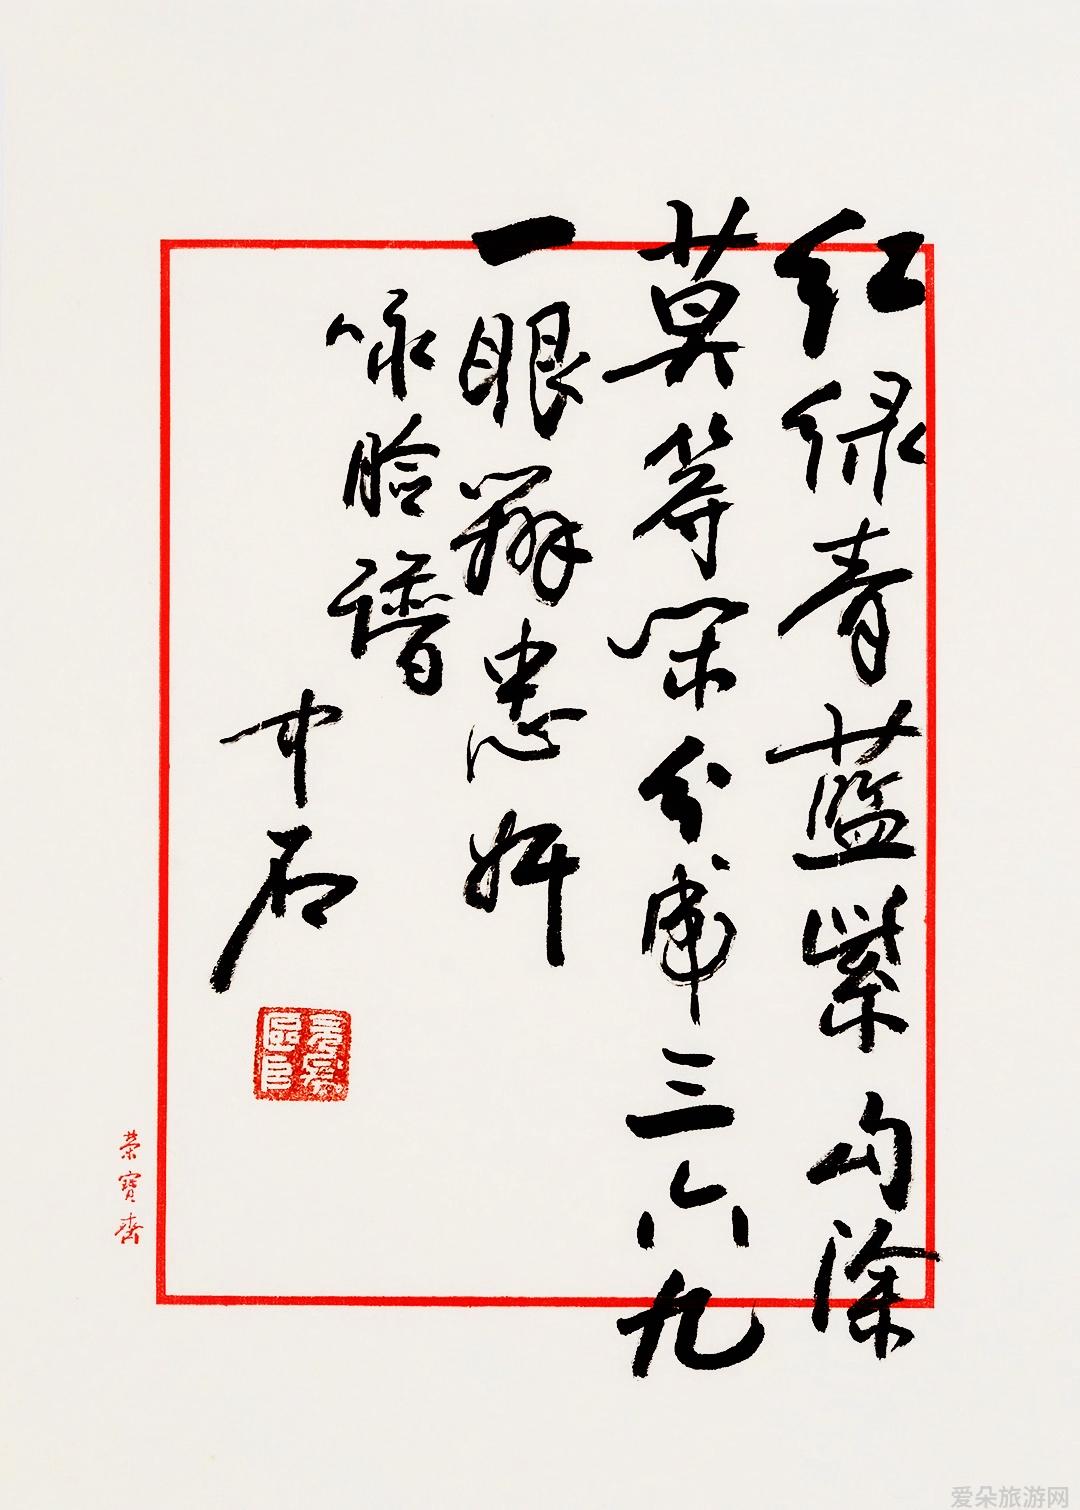 红绿青蓝紫勾涂
莫等闲分三六九
一眼辨忠奸
咏脸谱
中石
荣寶齋
爱朵旅游网